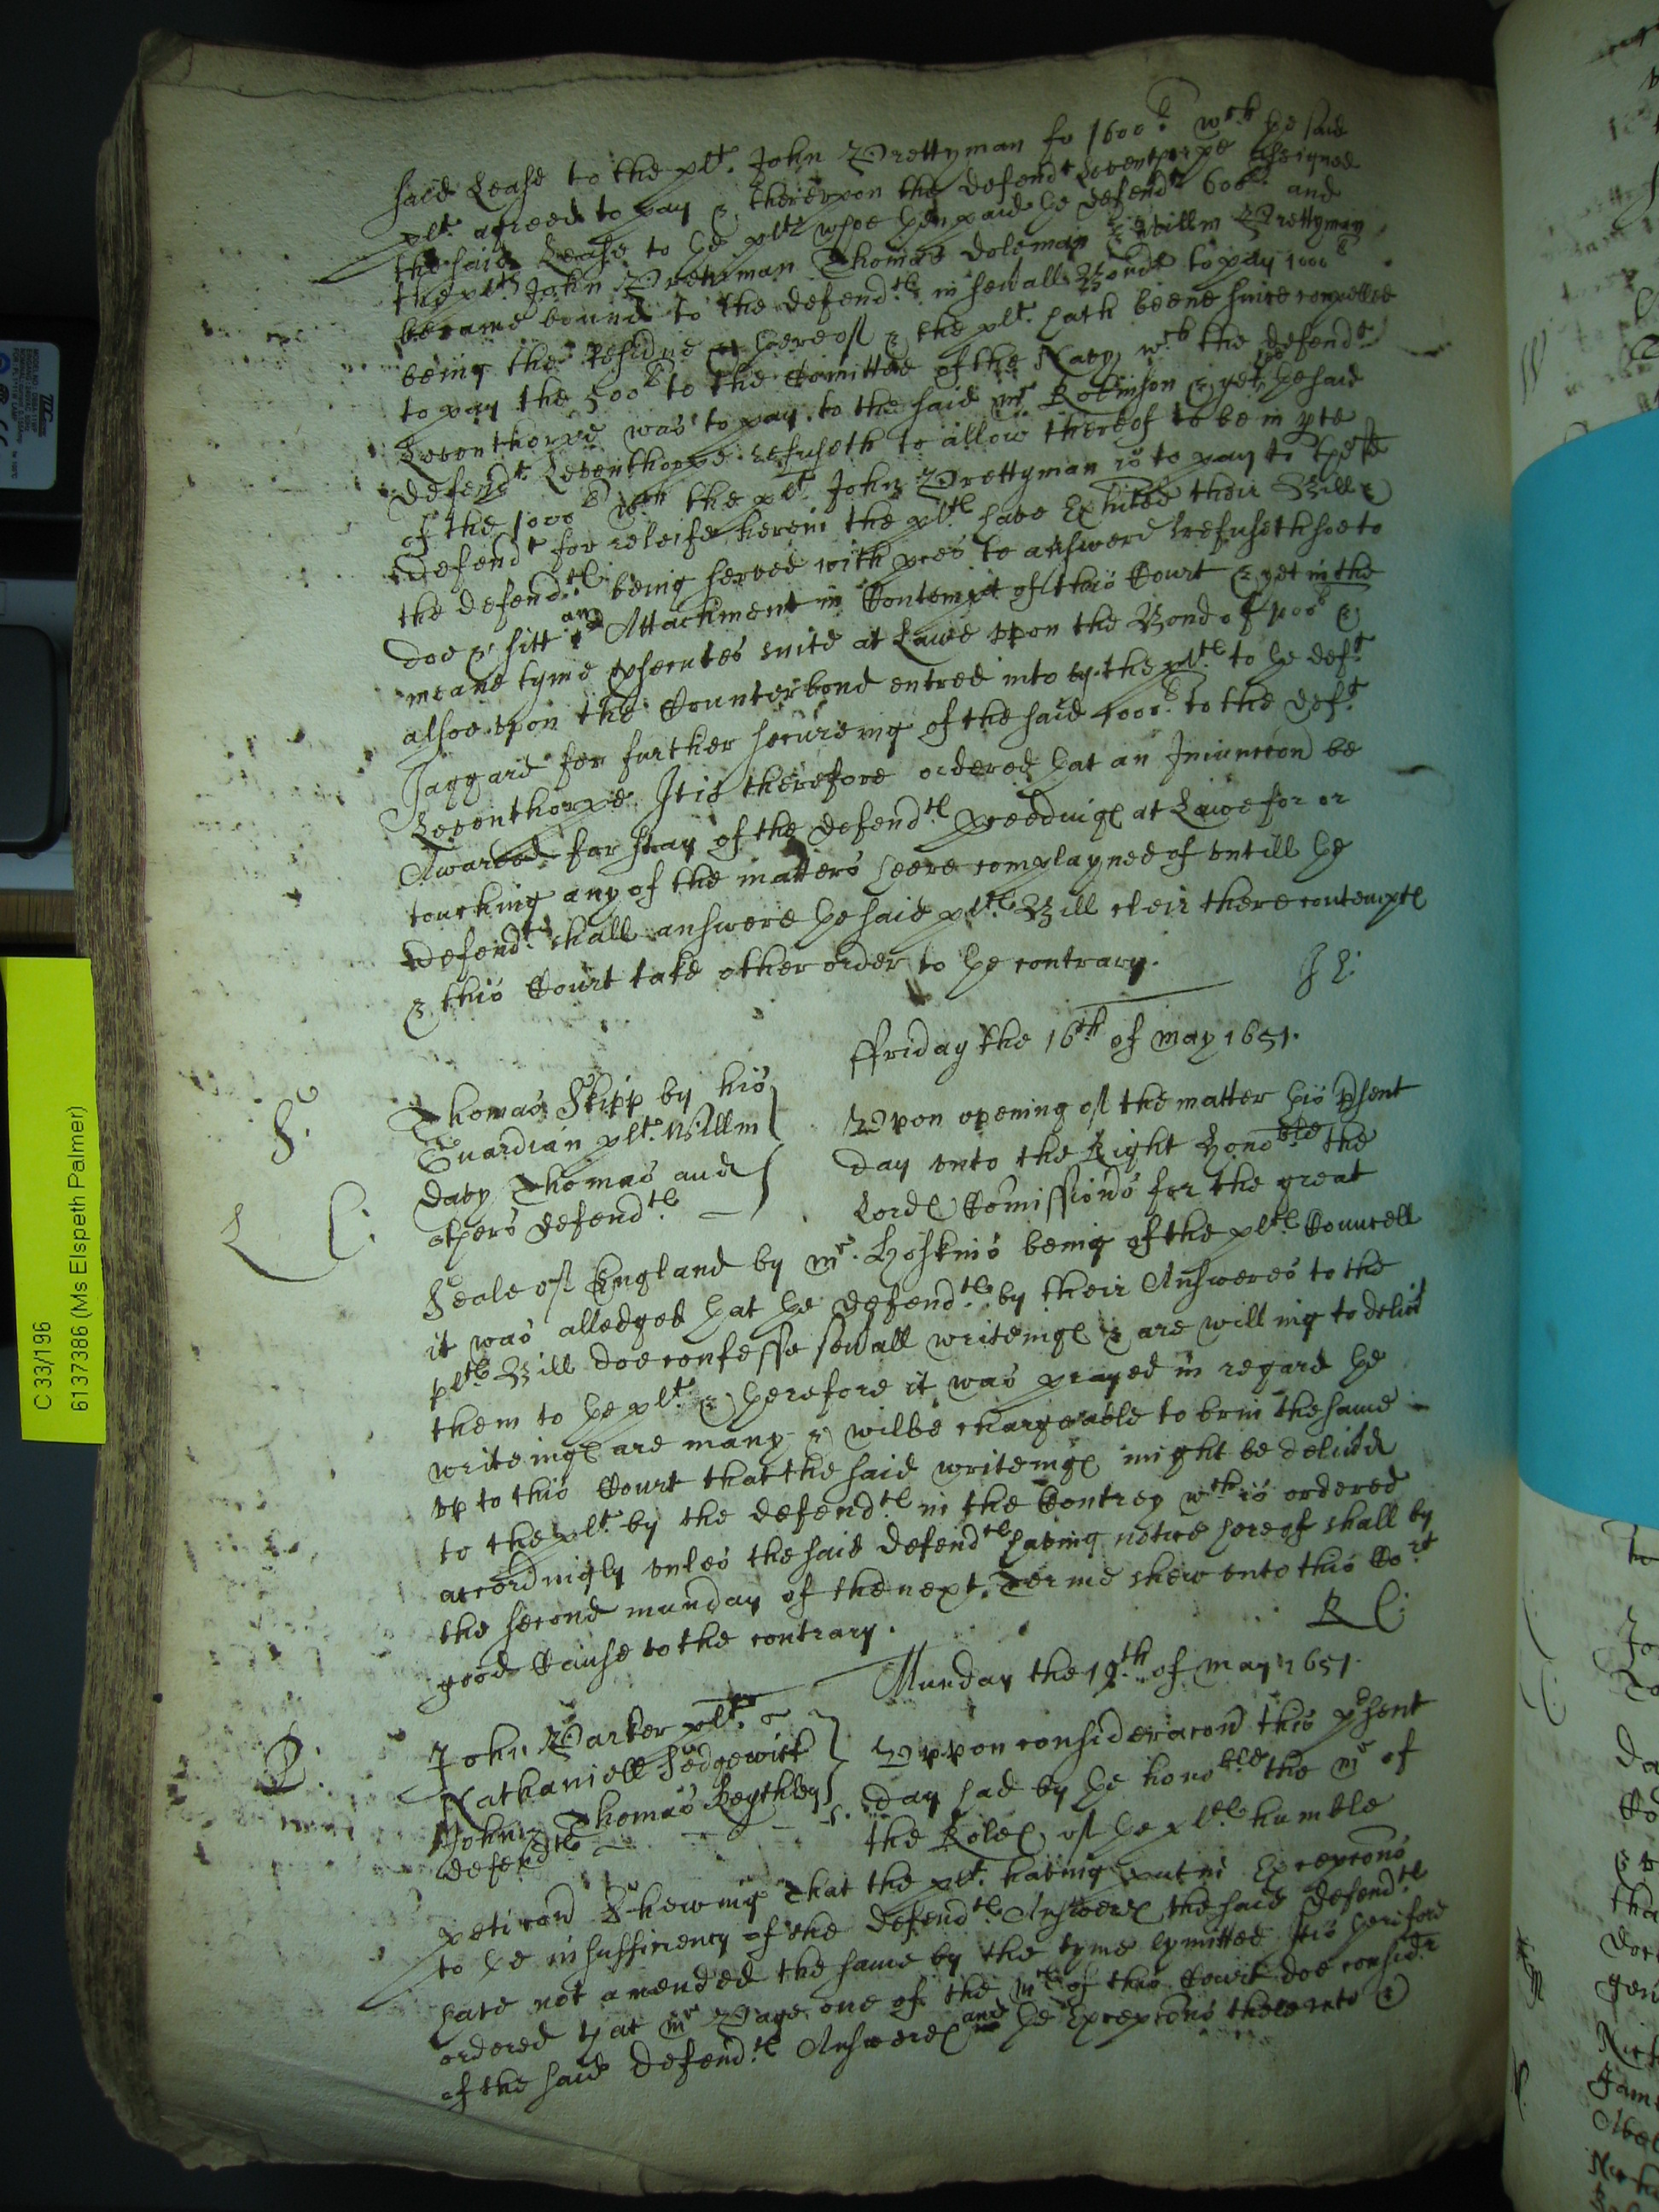 said Lease to the plt. John Prettyman for 1600l wch he said
plt. agreed to pay & therevpon the defendt Leventhorpe assigned
the said Lease to he plts whoe hen paid he defendt 600l and
the plts John Prettiman Thomas Doleman & Willm Prettyman
became bound to the defendts in seuall Bonds to pay 1000l
being the residue hereof & the plt. hath beene since compelled
to pay the 500l to the Comittee of the Navy wch the defendt
Leventhorpe was to pay to the said mr Robinson & yet he said
defendt Leventhorpe refuseth to allow thereof to be in pte
of the 1000l wch the plt. John Prettyman is to pay to the
defendt for releife herein the plts have Exhited their Bill &
the defendts being served with pces to answere refuseth soe to
doe & sitt and Attachment in Contempt of this Court & yet in the
meane tyme psecutes suite at Lawe vpon the Bond of 400l &
alsoe vpon the Counterbond entred into by the plts to he deft
Jaggard for further secureing of the said 1000l to the deft
Leventhorpe. It is therefore ordered hat an Iniunccon be
Awarded for stay of the defendts pceedings at Lawe for or
touching any of the matters heere complayned of vntill he
defendts shall answere he said plts Bill cleir there contempts
& this Court take other order to he contrary.
J L:
ffriday the 16th of may 1651.
S.
L C:
Thomas Skipp by his
Guardian plt. Willm
Davy Thomas and
others defendts
Vpon opening of the matter his psent
day vnto the Right Honoble the
Lords Comissionrs for the great
Seale of England by mr. Hoskins being of the plts Councell
it was alledged hat he defendts by their Answeres to the
plts Bill doe confesse seuall writeings & are willing to deliur
them to he plt. & herefore it was prayed in regard he
writeings are many & wilbe chargeable to brin the same
vp to this Court that the said writeings might be deliurd
to the plt. by the defendts in the Contrey wch is ordered
accordingly vnles the said defendts having notice hereof shall by
the second munday of the next Terme shew vnto this Cort
good Cause to the contrary.
R C:
Munday the 19th of may 1651.
P:
John Parker plt.
Nathaniell Sedgewick
John & Thomas Keythley
defendts
Vppon consideracon this psent
day had by he honoble the mr of
the Roles of he plts humble
peticon Shewing That the plt. having put in Excepcons
to he insufficiency of the defendts Answeres the said defendts
have not amended the same by the tyme lymitted It is herefore
ordered that mr Page one of the mrs of this Court doe considr
of the said defendts Answeres and he Excepcons there vnto &
C 33/196
6137386 (Ms Elspeth Palmer)